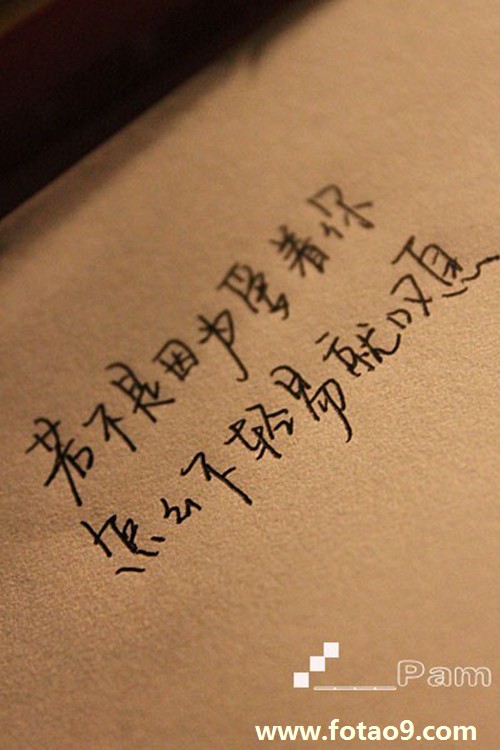 若不是因为爱着你
怎么不轻易就叹息
____Pam
www.fotao9.com